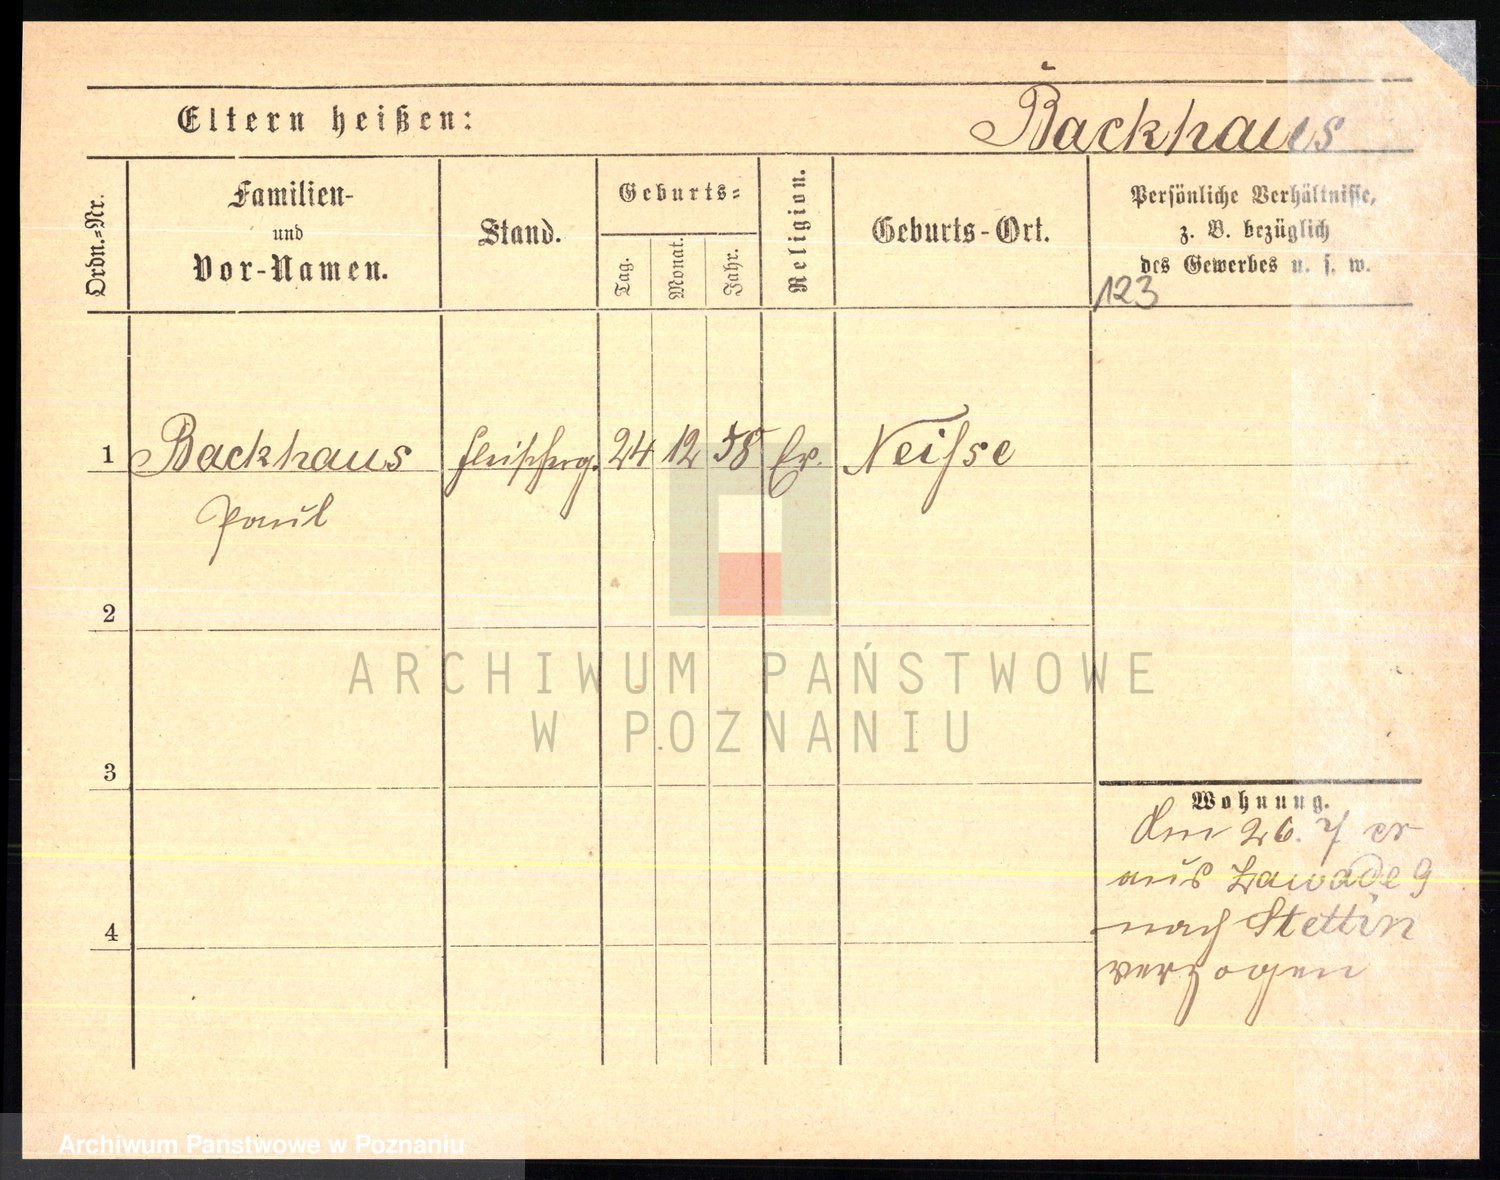 Eltern heißen:
Backhaus
Ordn.-Nr.
Familien-
und
Vor-Namen.
Stand.
Geburts-
Tag.
Monat.
Jahr.
Religion.
Geburts-Ort.
Persönliche Verhältnisse,
z. B. bezüglich
des Gewerbes u. s. w.
123
1 Backhaus Fleischerg. 24 12 58 Ev. Neisse
Paul
2
ARCHIWUM PAŃSTWOWE
W POZNANIU
3
Wohnung.
Den 26. 7 cr
aus Zawade 9
nach Stettin
verzogen
4
Archiwum Państwowe w Poznaniu